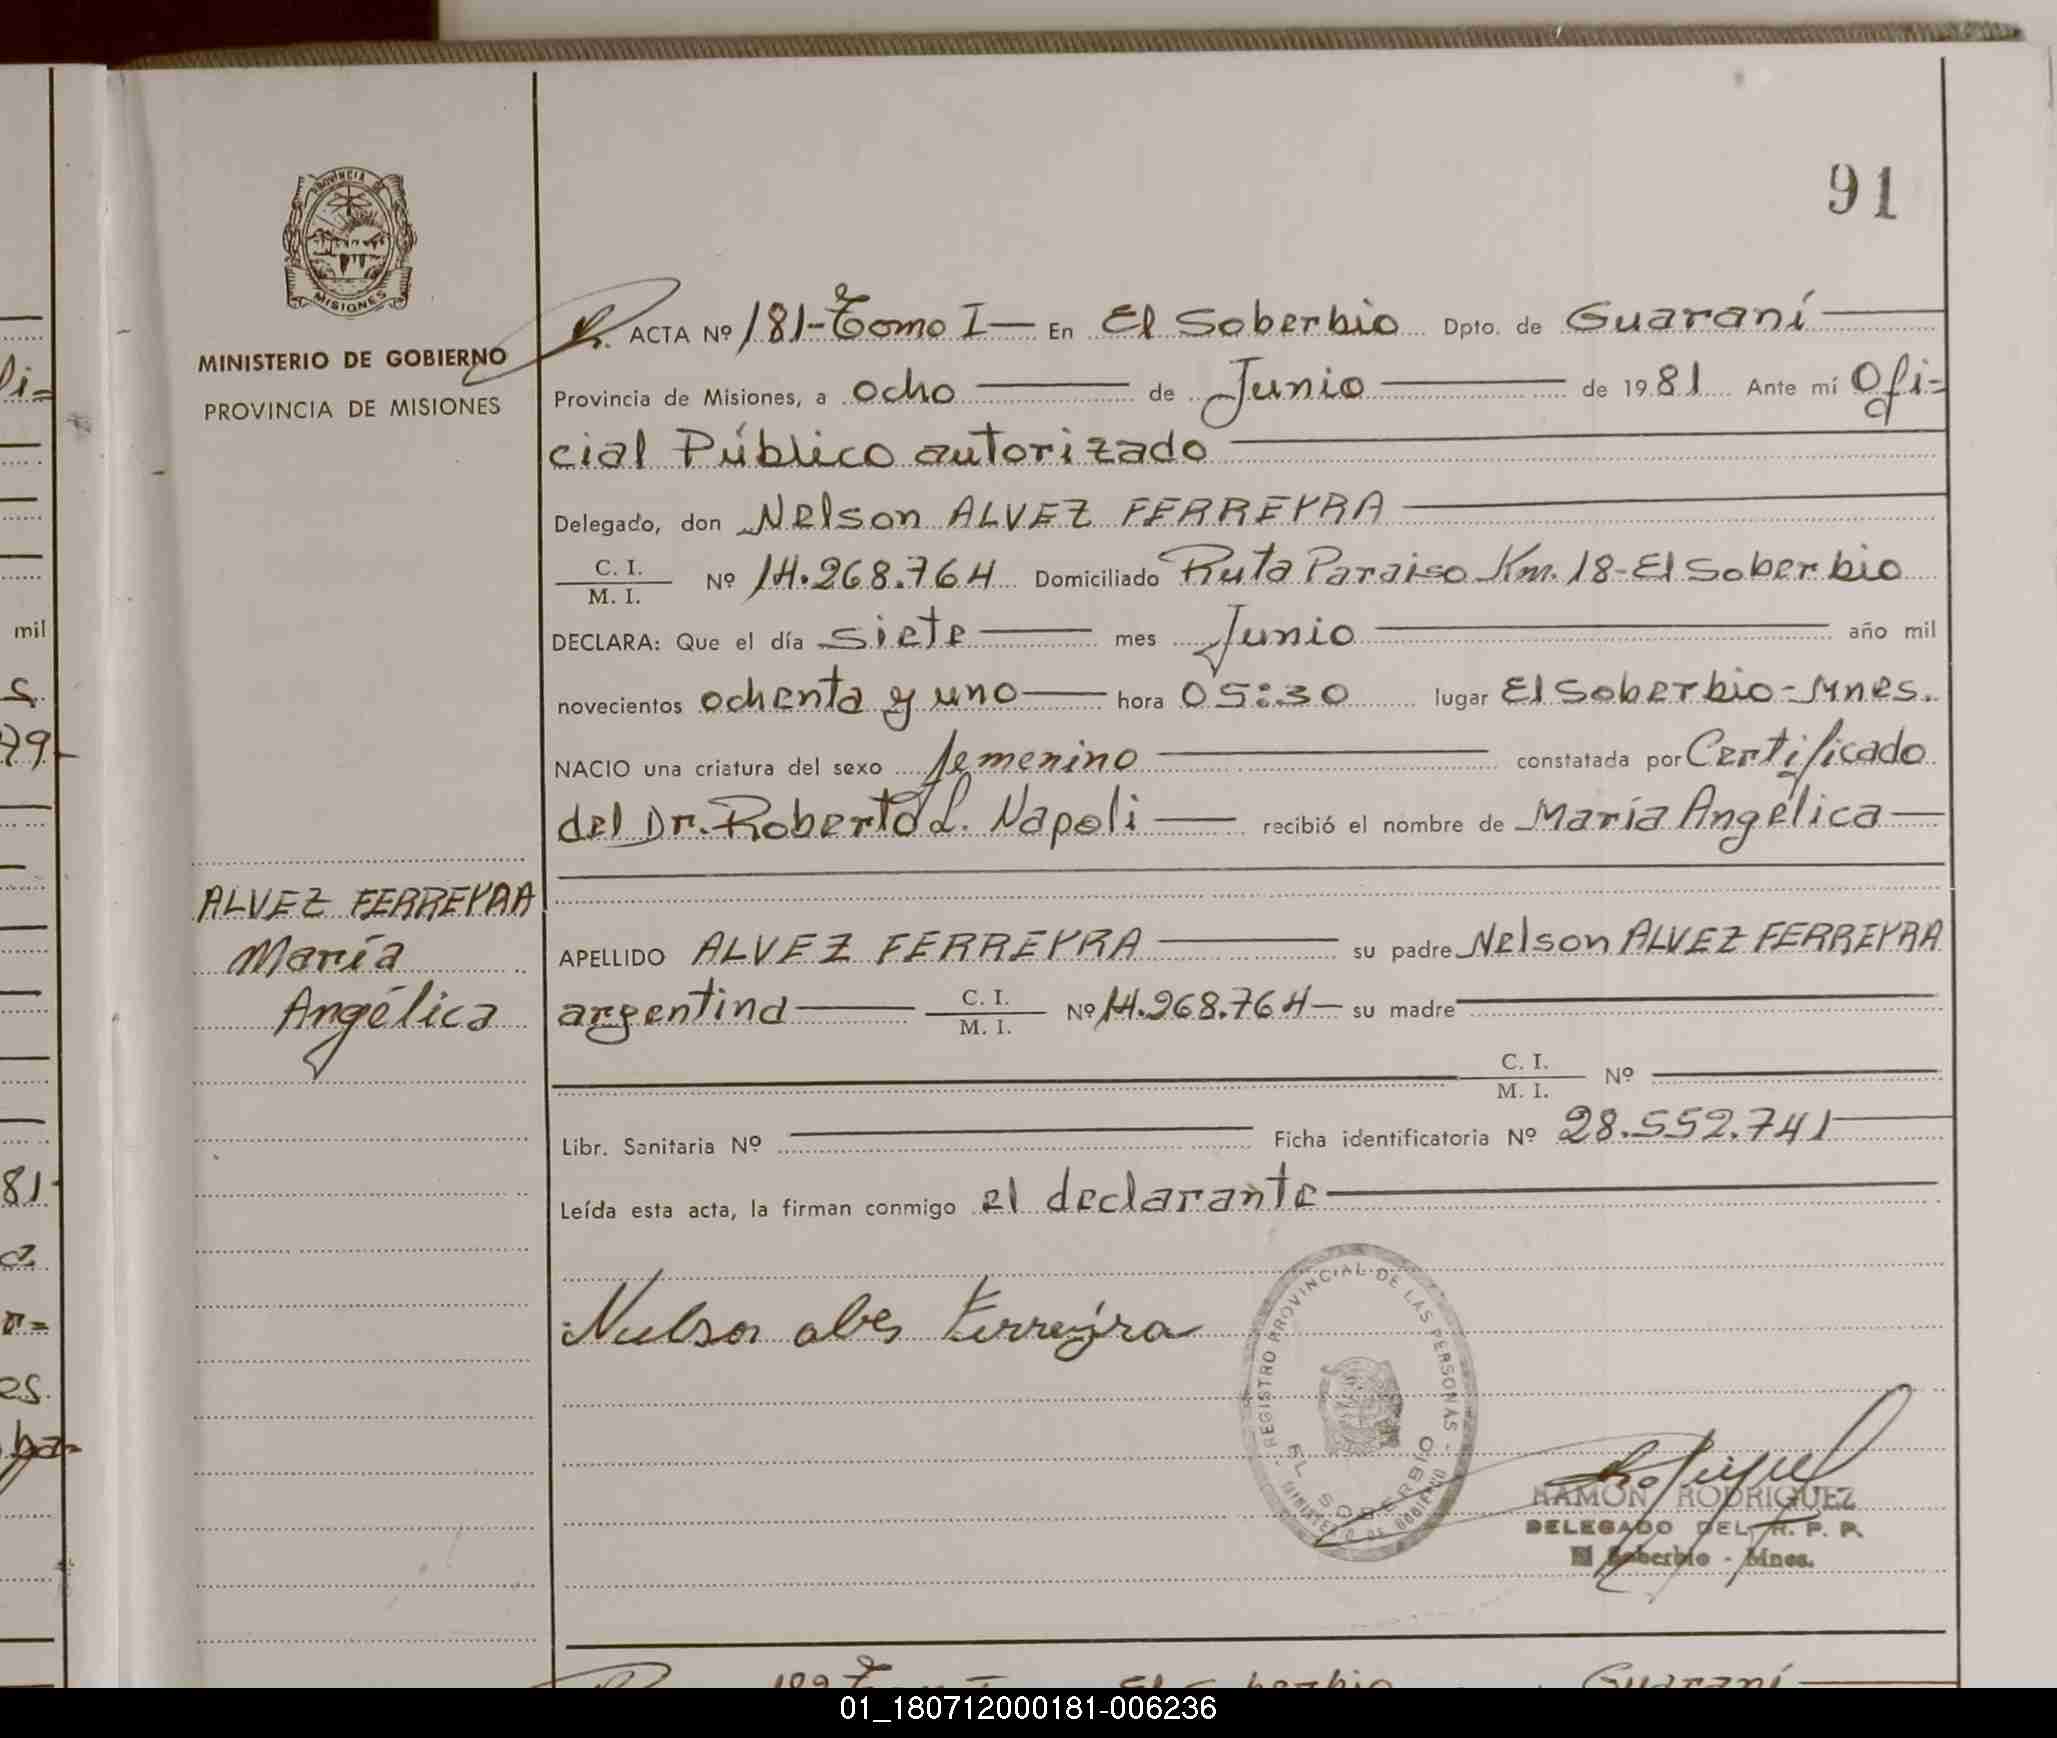 91
PROVINCIA DE
MISIONES
MINISTERIO DE GOBIERNO
PROVINCIA DE MISIONES
ACTA Nº 181-Tomo I— En El Soberbio Dpto. de Guaraní
Provincia de Misiones, a ocho — de Junio — de 1981 Ante mí Ofi=
cial Público autorizado
Delegado, don Nelson ALVEZ FERREYRA
C. I.
M. I. Nº 14.268.764 Domiciliado Ruta Paraiso Km. 18-El Soberbio
DECLARA: Que el día siete — mes Junio — año mil
novecientos ochenta y uno — hora 05:30 lugar El Soberbio-Mnes.
NACIO una criatura del sexo femenino — constatada por Certificado
del Dr. Roberto L. Napoli — recibió el nombre de María Angélica —
ALVEZ FERREYRA
María
Angélica
APELLIDO ALVEZ FERREYRA — su padre Nelson ALVEZ FERREYRA
argentino — C. I.
M. I. Nº 14.268.764— su madre
C. I.
M. I. Nº
Libr. Sanitaria Nº — Ficha identificatoria Nº 28.552.741
Leída esta acta, la firman conmigo el declarante
Nelson alves Ferreyra
REGISTRO PROVINCIAL DE LAS PERSONAS -
EL SOBERBIO
MINISTERIO DE GOBIERNO
RAMON RODRIGUEZ
DELEGADO DEL R. P. P.
El Soberbio - Mnes.
01_180712000181-006236